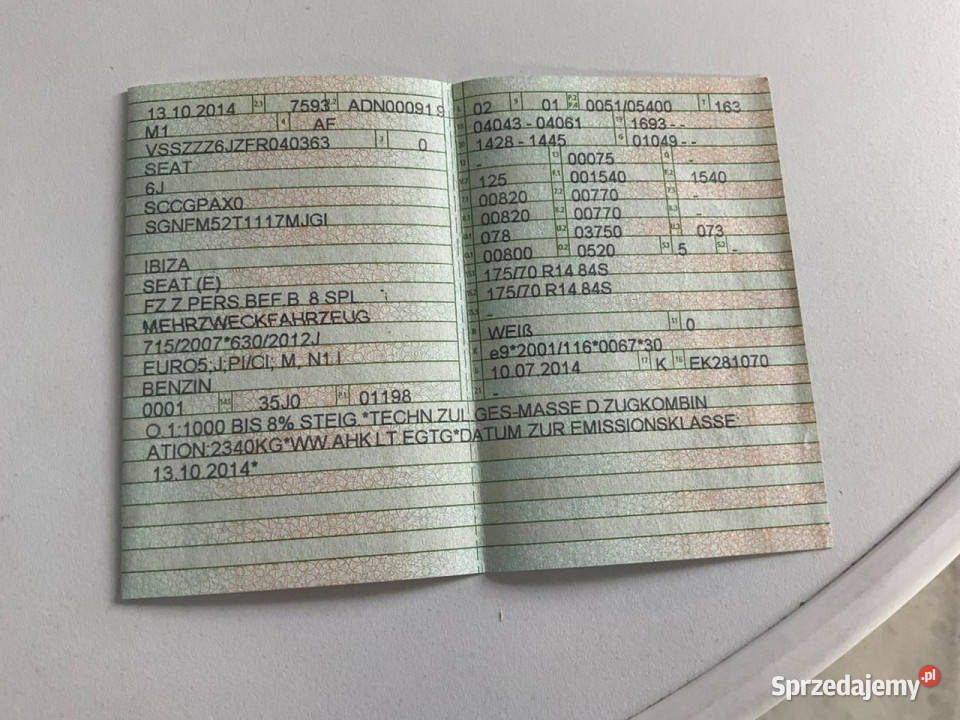 13.10.2014 2.1 7593 2.2 ADN000919
M1 4 AF
VSSZZZ6JZFR040363 3 0
SEAT
6J
SCCGPAX0
SGNFM52T1117MJGI
IBIZA
SEAT (E)
FZ.Z.PERS.BEF.B. 8 SPL.
MEHRZWECKFAHRZEUG
715/2007*630/2012J
EURO5;J;PI/CI; M, N1 I
BENZIN
0001 35J0 P.1 01198
02 9 01 P.2 P.4 0051/05400 T 163
04043 - 04061 19 1693 - -
1428 - 1445 G 01049 - -
- 13 00075 Q -
125 F.1 001540 F.2 1540
00820 7.2 00770 7.3 -
00820 8.2 00770 8.3 -
078 U.2 03750 U.3 073
00800 O.2 0520 S.1 5 S.2 -
175/70 R14 84S
175/70 R14 84S
-
R WEIß 11 0
K e9*2001/116*0067*30
6 10.07.2014 17 K 16 EK281070
21 -
O.1:1000 BIS 8% STEIG.*TECHN.ZUL.GES-MASSE D.ZUGKOMBIN
ATION:2340KG*WW.AHK LT.EGTG*DATUM ZUR EMISSIONSKLASSE:
13.10.2014*
Sprzedajemy.pl